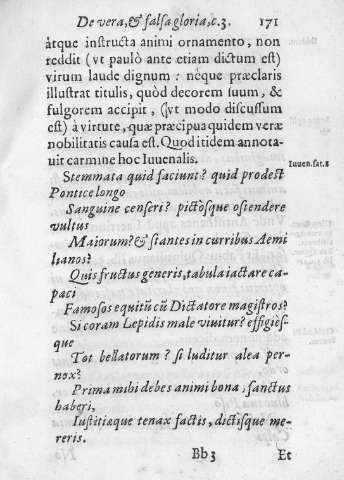 De vera, & falsa gloria, c.3. 171
átque instructa animi ornamento, non
reddit (vt paulò ante etiam dictum est)
virum laude dignum: néque præclaris
illustrat titulis, quòd decorem suum, &
fulgorem accipit, (vt modo discussum
est) à virtute, quæ præcipua quidem veræ
nobilitatis causa est. Quod itidem annota-
uit carmine hoc Iuuenalis.
Iuuen. sat. 8
Stemmata quid faciunt? quid prodest
Pontice longo
Sanguine censeri? pictosque ostendere
vultus
Maiorum? & stantes in curribus Aemi
lianos?
Quis fructus generis, tabula iactare ca-
paci
Famosos equitũ cũ Dictatore magistros?
Si coram Lepidis male viuitur? effigiès-
que
Tot bellatorum? si luditur alea per-
nox?
Prima mihi debes animi bona, sanctus
haberi,
Iustitiæque tenax factis, dictisque me-
reris.
Bb3 Et